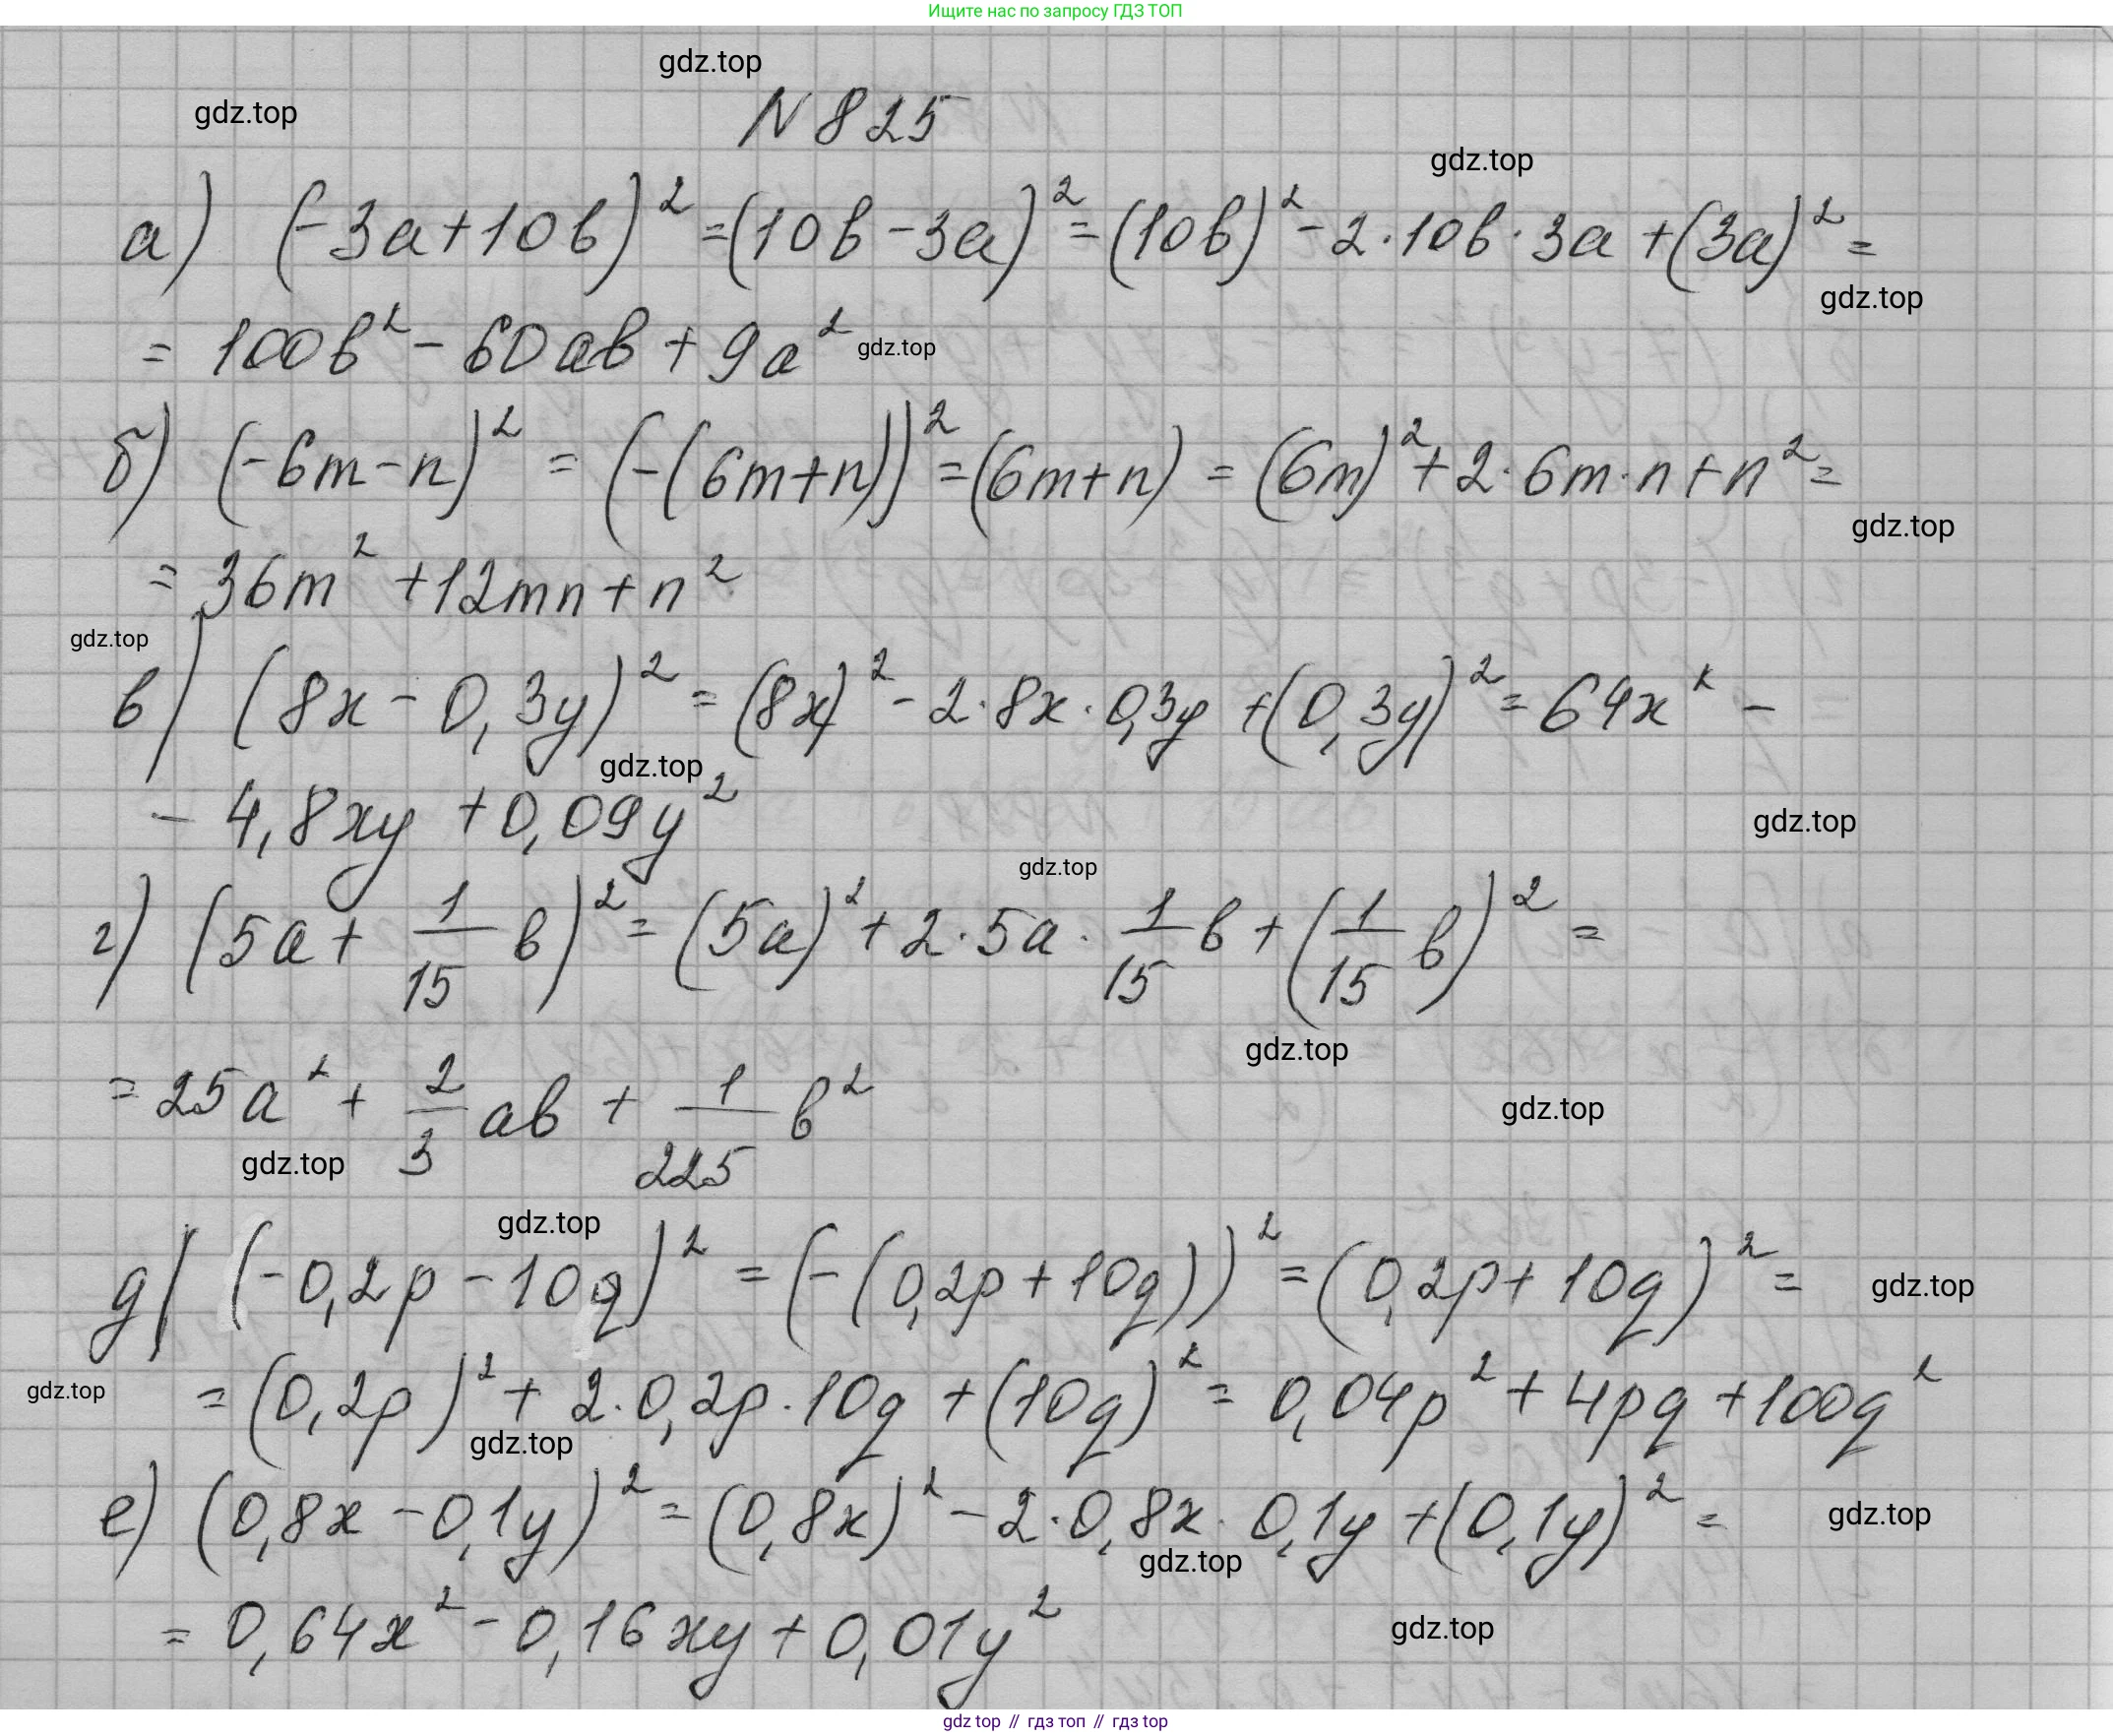 Ищите нас по запросу ГДЗ ТОП
gdz.top
gdz.top
N 825
gdz.top
а) (-3a+10b)² =(10b-3a)²=(10b)²-2·10b·3a+(3a)²=
gdz.top
= 100b²-60ab+9a²
gdz.top
б) (-6m-n)² = (-(6m+n))²=(6m+n) = (6m)²+2·6m·n+n²=
gdz.top
= 36m²+12mn+n²
gdz.top
в) (8x-0,3y)² = (8x)²-2·8x·0,3y+(0,3y)²=64x²-
gdz.top
-4,8xy+0,09y²
gdz.top
gdz.top
г) (5a+1/15 b)²=(5a)²+2·5a·1/15 b+(1/15 b)²=
gdz.top
=25a²+2/3 ab+1/225 b²
gdz.top
gdz.top
gdz.top
д) (-0,2p-10q)² =(-(0,2p+10q))²=(0,2p+10q)²=
gdz.top
=(0,2p)²+2·0,2p·10q+(10q)²=0,04p²+4pq+100q²
gdz.top
gdz.top
е) (0,8x-0,1y)²=(0,8x)²-2·0,8x·0,1y+(0,1y)²=
gdz.top
gdz.top
=0,64x²-0,16xy+0,01y²
gdz.top
gdz top // гдз топ // гдз top